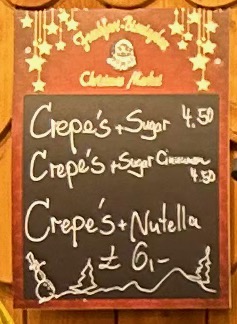 Frankfurt Birmingham
Christmas Market
Crepe's + Sugar 4.50
Crepe's + Sugar Cinnamon
4.50
Crepe's + Nutella
£ 6,-